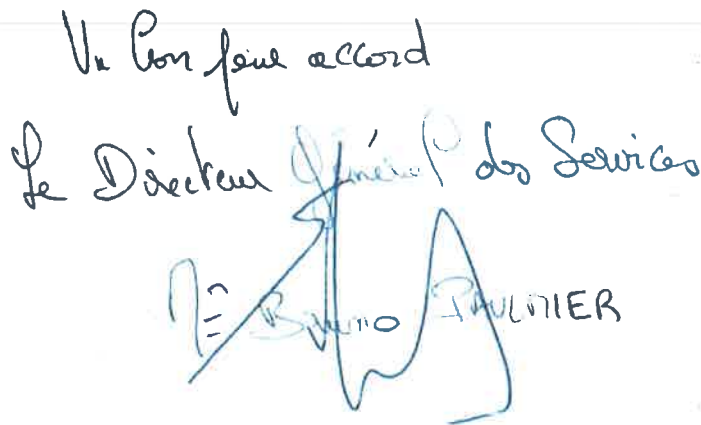 Vu bon pour accord
Le Directeur Général des Services
Mr Bruno PAULMIER